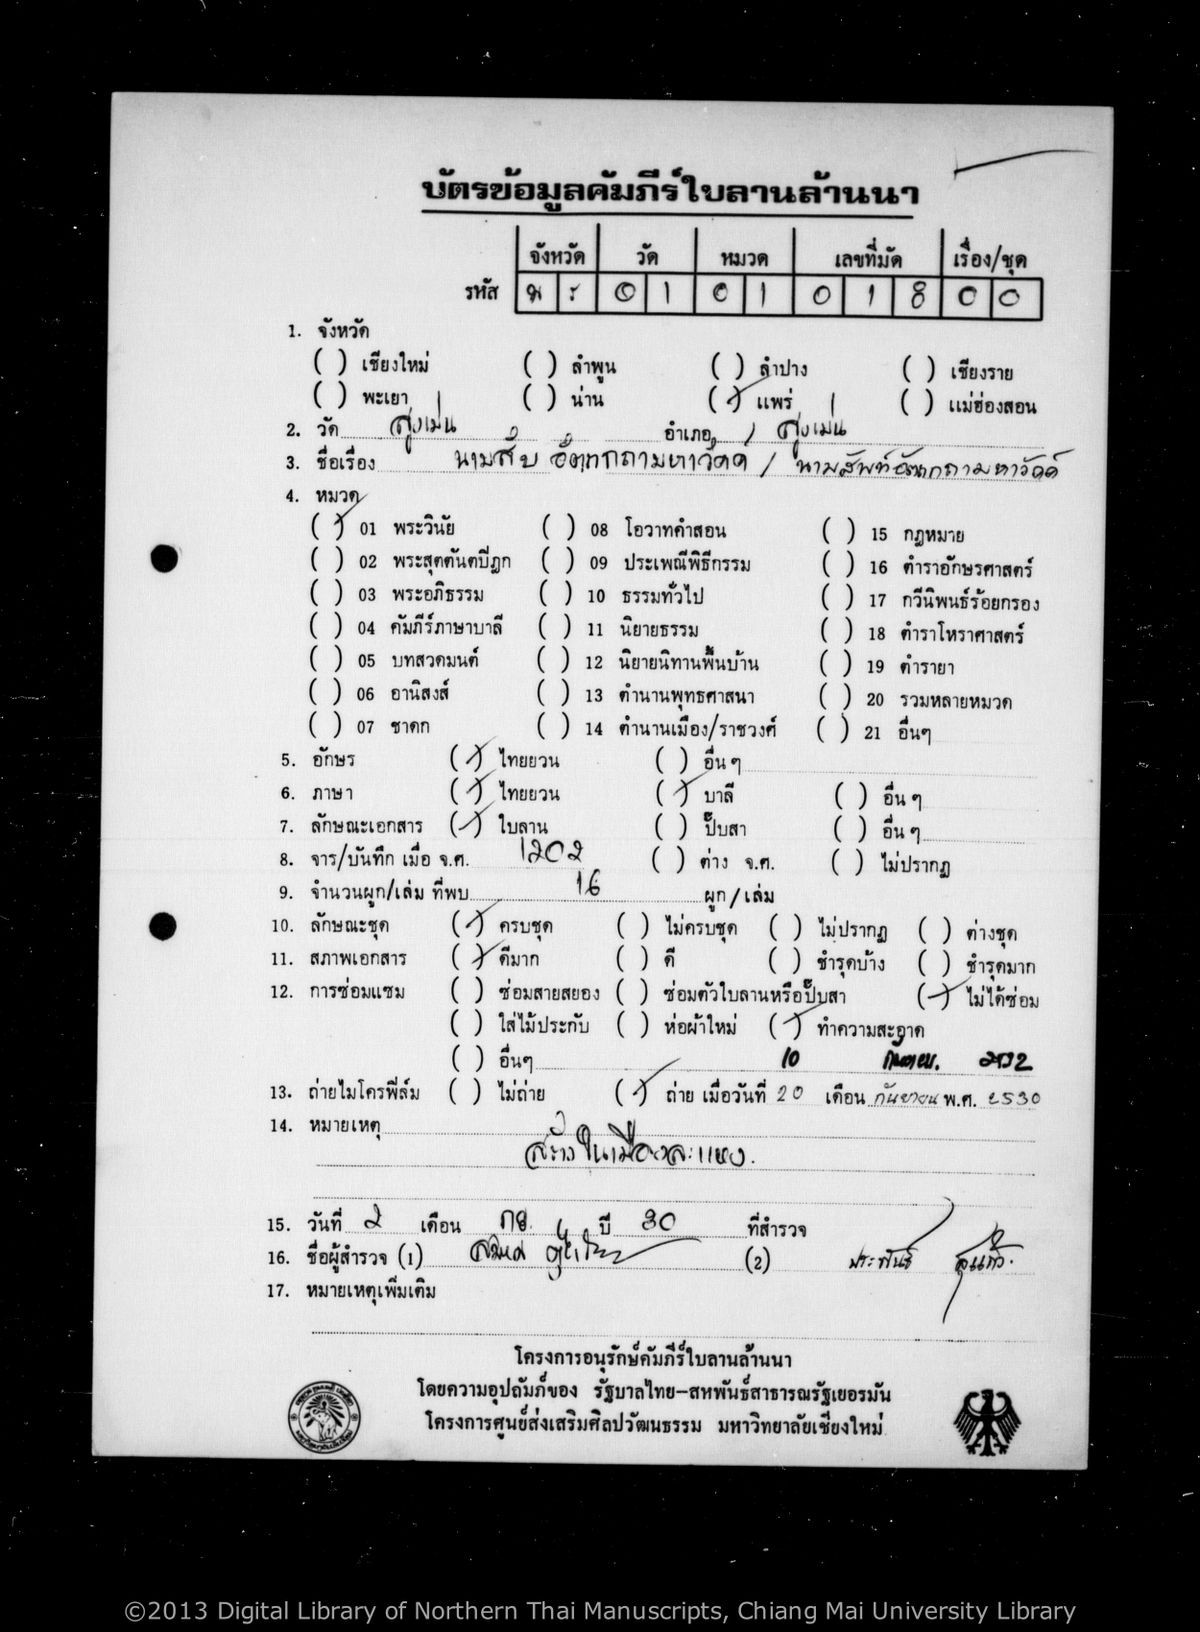 บัตรข้อมูลคัมภีร์ใบลานล้านนา
จังหวัด วัด หมวด เลขที่มัด เรื่อง/ชุด
รหัส พ ร 0 1 0 1 0 1 8 0 0
1. จังหวัด
( ) เชียงใหม่ ( ) ลำพูน ( ) ลำปาง ( ) เชียงราย
( ) พะเยา ( ) น่าน (✓) แพร่ ( ) แม่ฮ่องสอน
2. วัด สูงเม่น อำเภอ สูงเม่น
3. ชื่อเรื่อง นามสับ อัตถกถามหาวัคค์ / นามสัพท์อัตถกถามหาวัคค์
4. หมวด
(✓) 01 พระวินัย ( ) 08 โอวาทคำสอน ( ) 15 กฎหมาย
( ) 02 พระสุตตันตปิฎก ( ) 09 ประเพณีพิธีกรรม ( ) 16 ตำราอักษรศาสตร์
( ) 03 พระอภิธรรม ( ) 10 ธรรมทั่วไป ( ) 17 กวีนิพนธ์ร้อยกรอง
( ) 04 คัมภีร์ภาษาบาลี ( ) 11 นิยายธรรม ( ) 18 ตำราโหราศาสตร์
( ) 05 บทสวดมนต์ ( ) 12 นิยายนิทานพื้นบ้าน ( ) 19 ตำรายา
( ) 06 อานิสงส์ ( ) 13 ตำนานพุทธศาสนา ( ) 20 รวมหลายหมวด
( ) 07 ชาดก ( ) 14 ตำนานเมือง/ราชวงศ์ ( ) 21 อื่นๆ
5. อักษร (✓) ไทยยวน ( ) อื่น ๆ
6. ภาษา (✓) ไทยยวน (✓) บาลี ( ) อื่น ๆ
7. ลักษณะเอกสาร (✓) ใบลาน ( ) ปั๊บสา ( ) อื่น ๆ
8. จาร/บันทึก เมื่อ จ.ศ. 1202 ( ) ต่าง จ.ศ. ( ) ไม่ปรากฏ
9. จำนวนผูก/เล่ม ที่พบ 16 ผูก/เล่ม
10. ลักษณะชุด (✓) ครบชุด ( ) ไม่ครบชุด ( ) ไม่ปรากฏ ( ) ต่างชุด
11. สภาพเอกสาร (✓) ดีมาก ( ) ดี ( ) ชำรุดบ้าง ( ) ชำรุดมาก
12. การซ่อมแซม ( ) ซ่อมสายสยอง ( ) ซ่อมตัวใบลานหรือปั๊บสา (✓) ไม่ได้ซ่อม
( ) ใส่ไม้ประกับ ( ) ห่อผ้าใหม่ (✓) ทำความสะอาด
( ) อื่นๆ 10 กันยายน. 2532
13. ถ่ายไมโครฟิล์ม ( ) ไม่ถ่าย (✓) ถ่าย เมื่อวันที่ 20 เดือน กันยายน พ.ศ. 2530
14. หมายเหตุ
สร้างในเมืองละแหง.
15. วันที่ 2 เดือน กย. ปี 30 ที่สำรวจ
16. ชื่อผู้สำรวจ (1) (2) ประพันธ์ สุนแก้ว.
17. หมายเหตุเพิ่มเติม
โครงการอนุรักษ์คัมภีร์ใบลานล้านนา
โดยความอุปถัมภ์ของ รัฐบาลไทย–สหพันธ์สาธารณรัฐเยอรมัน
โครงการศูนย์ส่งเสริมศิลปวัฒนธรรม มหาวิทยาลัยเชียงใหม่
©2013 Digital Library of Northern Thai Manuscripts, Chiang Mai University Library